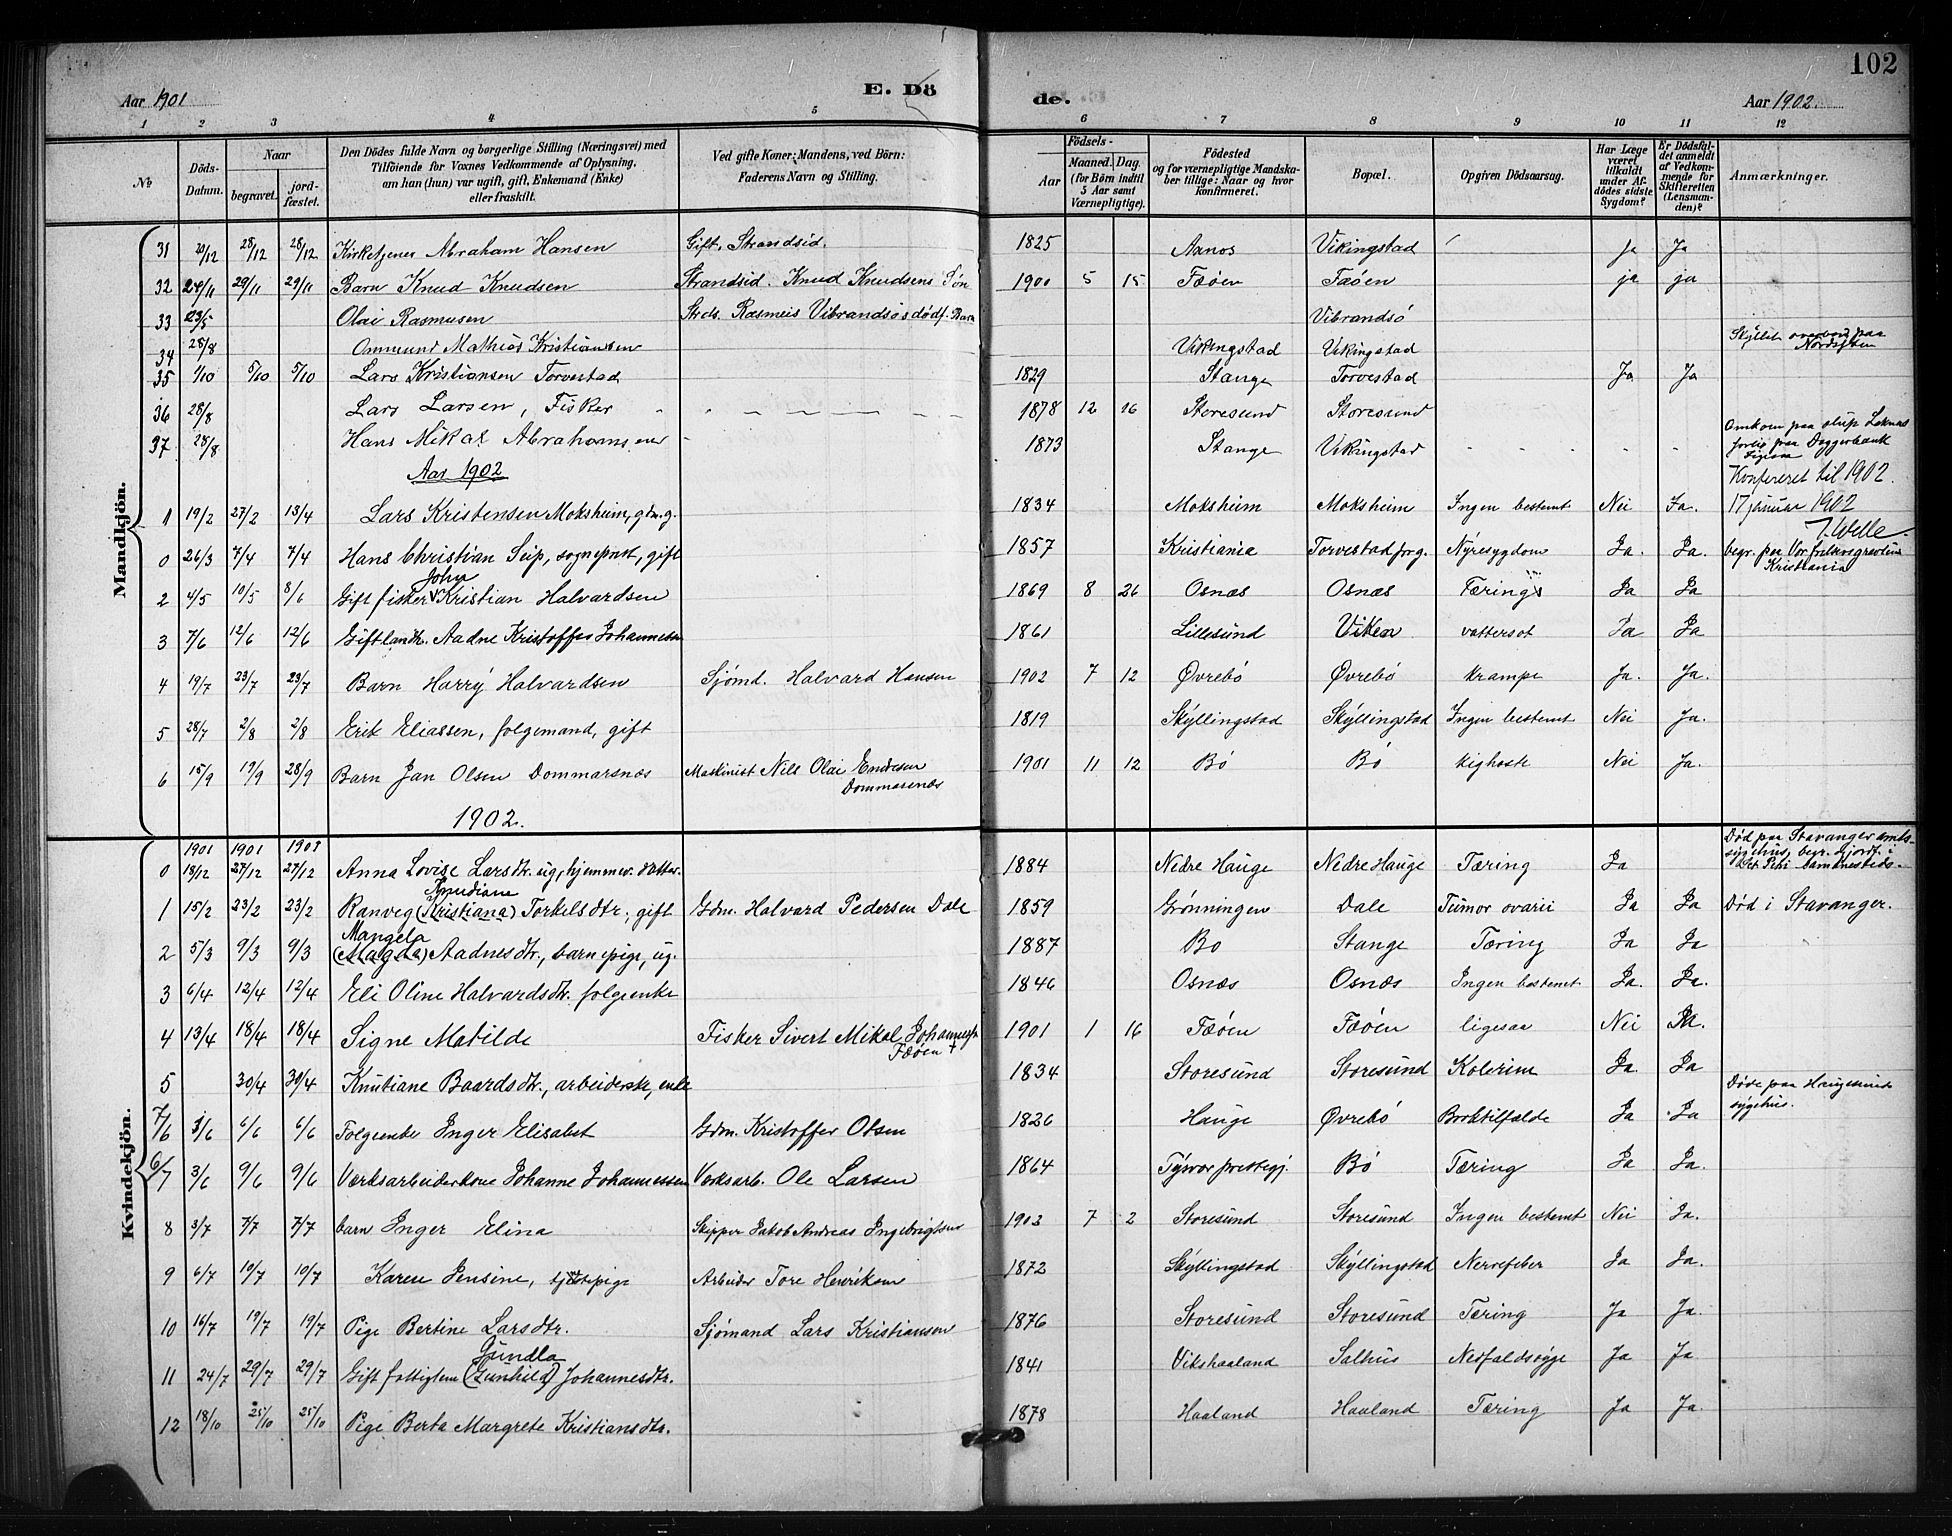 102
Aar 1901 E. Dö de. Aar 1902.
1 2 3 4 5 6 7 8 9 10 11 12
No
Döds-Datum.
Naar
begravet.
jord-fæstet.
Den Dödes fulde Navn og borgerlige Stilling (Næringsvei) med
Tilföiende for Voxnes Vedkommende af Oplysning,
om han (hun) var ugift, gift, Enkemand (Enke)
eller fraskilt.
Ved gifte Koner: Mandens, ved Börn:
Faderens Navn og Stilling.
Födsels-
Aar
Maaned. Dag.
(for Börn indtil
5 Aar samt
Værnepligtige).
Födested
og for værnepligtige Mandska-
ber tillige: Naar og hvor
konfirmeret.
Bopæl.
Opgiven Dödsaarsag.
Har Læge
været
tilkaldt
under Af-
dödes sidste
Sygdom?
Er Dödsfal-
det anmeldt
af Vedkom-
mende for
Skifteretten
(Lensman-
den)?
Anmærkninger.
Mandkjön.
31 20/12 28/12 28/12 Kirketjener Abraham Hansen Gift, Strandsid. 1825 Aanos Vikingstad Ja Ja
32 24/11 29/11 29/11 Barn Knud Knudsen Strandsid. Knud Knudsens Søn 1900 5 15 Fæøen Fæøen ja ja
33 23/5 Olai Rasmusen Strds. Vibrandsøs dødf. Barn Vibrandsö
34 28/8 Ommund Mathias Kristiansen Vikingstad Vikingstad Skyllet overbord paa Nordsjøen
35 1/10 5/10 5/10 Lars Kristiansen Torvestad 1829 Stange Torvestad Ja Ja
36 28/8 Lars Larsen, Fisker 1878 12 16 Storesund Storesund
37 28/8 Hans Mikal Abrahamsen 1873 Stange Vikingstad Omkom paa slup forlig paa Doggerbank
Aar 1902
Konfereret til 1902.
1 19/2 27/2 13/4 Lars Kristensen Moksheim, gdm. g. 1834 Moksheim Moksheim Ingen bestemt Nei Ja. 17 januar 1902
0 26/3 7/4 7/4 Hans Christian Seip, sogneprest, gift 1857 Kristiania Torvestad prg. Nyresygdom Ja. Ja. begr. paa Vor frelsers gravlund Kristiania
2 4/5 10/5 8/6 Gift fisker John Kristian Halvardsen 1869 8 26 Osnæs Osnæs Tæring Ja Ja
3 7/6 12/6 12/6 Gift Aadne Kristoffer Johannessen 1861 Lillesund Viken vattersot Ja Ja
4 19/7 23/7 23/7 Barn Harry Halvardsen Sjømd. Halvard Hansen 1902 7 12 Øvrebö Øvrebö krampe Ja. Ja.
5 28/7 2/8 2/8 Erik Eliassen, folgemand, gift 1819 Skyllingstad Skyllingstad Ingen bestemt Nei Ja.
6 15/9 19/9 28/9 Barn Jan Olsen Dommarsnæs Maskinist Nils Olai Endresen Dommarsnæs 1901 11 12 Bö Bö kighoste Nei Ja.
1902.
Kvindekjön.
1901 1901 1901
0 18/12 27/12 27/12 Anna Lovise Larsdtr. ug, hjemmev. datter. 1884 Nedre Hauge Nedre Hauge Tæring Ja Død paa Stavanger amtssygehus, begr.
1 15/2 23/2 23/2 Ranveg (Kristiana) Knudiane Torkilsdtr., gift Gdm. Halvard Pedersen Dale 1859 Grønningen Dale Tumor ovarii Ja Ja Død i Stavanger.
2 5/3 9/3 9/3 Mangela (Magda) Aadnesdtr., barnepige, ug. 1887 Bo Stange Tæring Ja Ja
3 6/4 12/4 12/4 Eli Oline Halvardsdtr. folgeenke 1846 Osnæs Osnæs Ingen bestemt Ja. Ja.
4 13/4 18/4 18/4 Signe Matilde Fisker Sivert Mikal Johannessen Fæøen † 1901 1 16 Fæøen Fæøen ligesaa Nei Ja.
5 30/4 30/4 Knutiane Baardsdtr., arbeiderske, enke 1834 Storesund Storesund Kolerine Ja Ja Døde paa Haugesund sygehus.
7/6 3/6 6/6 6/6 Folgeenke Inger Elisabet Gdm. Kristoffer Olsen 1826 Hauge Øvrebö Ja Ja
6/7 3/6 9/6 9/6 Værksarbeiderkone Johanne Johannessen Verksarb. Ole Larsen 1864 Tysvær prestegj. Bö Tæring Ja Ja.
8 3/7 7/7 7/7 barn Inger Elina Skipper Jakob Andreas Ingebrigtsen 1902 7 2 Storesund Storesund Ingen bestemt Nei Ja.
9 6/7 10/7 10/7 Karen Jensine, Arbeider Tore Henriksen 1872 Skyllingstad Skyllingstad Nervefeber Ja Ja.
10 16/7 19/7 19/7 Pige Bertine Larsdtr. Sjømand Lars Kristiansen 1876 Storesund Storesund Tæring Ja Ja.
11 24/7 29/7 29/7 Gift fattiglem Gundla (Gunhild) Johannesdtr. 1841 Vikshaaland Salhus Nedfaldssyge Ja Ja
12 18/10 25/10 25/10 Pige Berta Margrete Kristiansdtr. 1878 Haaland Haaland Tæring Ja Ja